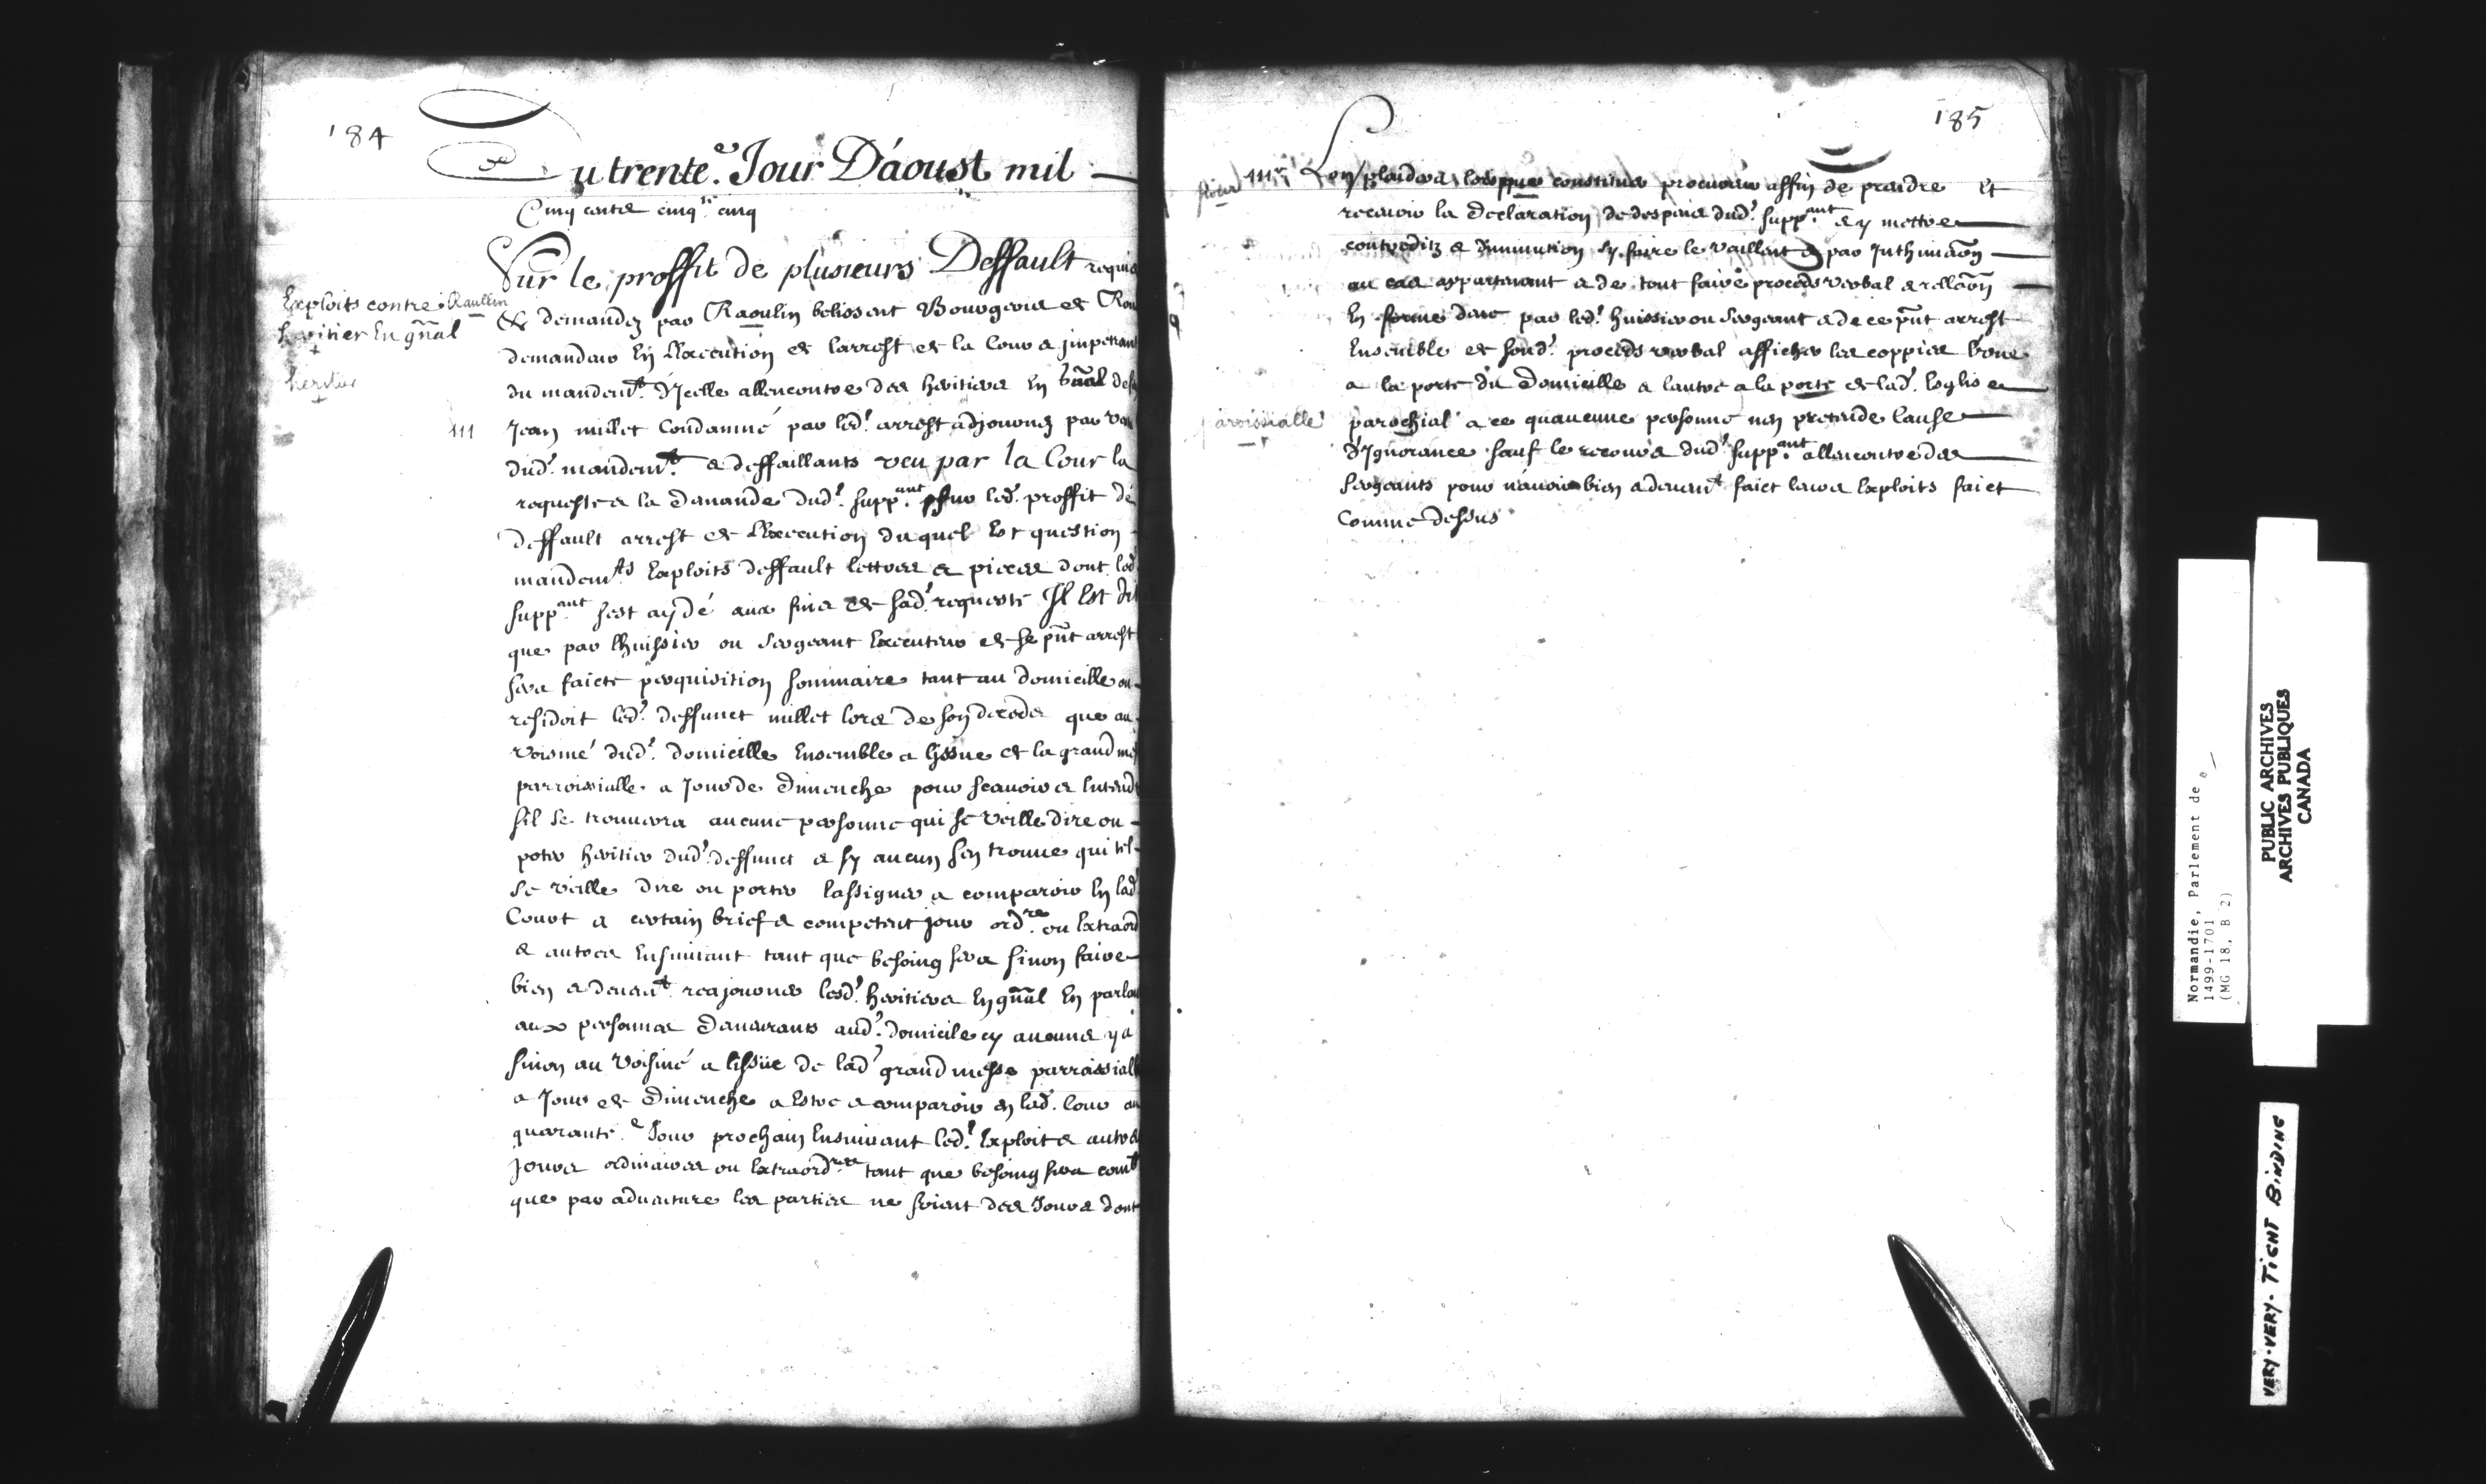 184
Du trente.e Jour D'aoust mil
Cinq centz cinq.te cinq
Sur le proffit de plusieurs Deffault requis
Exploits contre Raullin
heritier En gñal
heritier
& demandez par Raoulin belissent Bourgeois de Rou
demandeur En Lexecution de larrest de la Cour & jmpetrant
du mandem.t d'Jcelle allencontre des heritiers En gñal de
Jean millet Condamné par led.t arrest adjournez par v
dud.t mandem.t & deffaillants veu par la Cour la
requeste & la demande dud.t supp.ant sur led.t proffit de
deffault arrest de Lexecution duquel Est question
mandem.ts Exploits deffault lettres & pieces dont led
supp.ant sest aydé aux fins de sad.t requeste Il Est dit
que par lhuissier ou sergeant Executeur de ce pñt arrest
sera faicte perquisition sommaire tant au domicille ou
residoit led.t deffunct millet lors de son decedz que au
voisiné dud.t domicille Ensemble a lissue de la grand me
parroissialle a Jour de Dimenche pour scavoir & Entend
sil se trouuera aucune personne qui se veille dire ou
poter heritier dud.t deffunct & sy aucun sen trouue qui tel
se veille dire ou porter lassigner a comparoir En lad
Court a certain brief & competent jour ord.re ou Extraord
& autres Ensuiuant tant que besoing sera sinon faire
bien & deuem.t reajourner lesd.t heritiers En gñal En parla
aux personnes Demeurants aud.t domicile sy aucuns y a
sinon au voisiné a lissüe de lad.t grand messe parroissiall
a Jour de Dimenche a Estre & comparoir en lad. Cour au
quarante.e Jour prochain Ensuiuant led.t Exploit & autres
Jours ordinaires ou Extraord.res tant que besoing sera comb
que par aduenture les parties ne soient des Jours dont
185
Len plaidera lors pour constituer procureur affin de prendre Et
receuoir la Declaration de despens dud.t supp.ant & y mettre
contreditz & diminution sy faire le vaillent & par Inthimaõn
au cas appartenant & de tout faire procedz verbal & rellaõn
En forme deue par led.t huissier ou sergeant & de ce pñt arrest
Ensemble de sond.t procedz verbal afficher les coppies lvne
a la porte du domicille & lautre a la porte de lad.t Eglise
paroissialle
parochial a ce quaucune personne nen pretende Cause
d'Ignorance sauf le recours dud.t supp.ant allencontre des
sergeants pour nauoir bien & deuem.t faict leurs Exploits faict
Comme dessus
Normandie, Parlement de
1499-1701
(MG 18, B 2)
PUBLIC ARCHIVES
ARCHIVES PUBLIQUES
CANADA
VERY-VERY-TIGHT BINDING